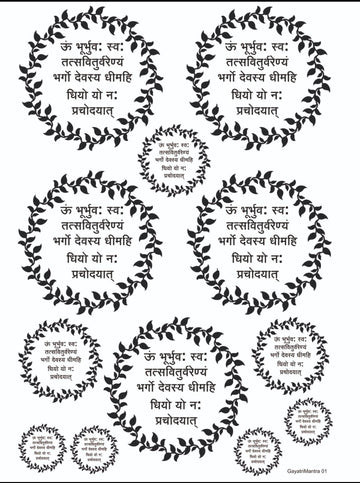 ऊं भूर्भुव: स्व:
तत्सवितुर्वरेण्यं
भर्गो देवस्य धीमहि
धियो यो न:
प्रचोदयात्
ऊं भूर्भुव: स्व:
तत्सवितुर्वरेण्यं
भर्गो देवस्य धीमहि
धियो यो न:
प्रचोदयात्
ऊं भूर्भुव: स्व:
तत्सवितुर्वरेण्यं
भर्गो देवस्य धीमहि
धियो यो न:
प्रचोदयात्
ऊं भूर्भुव: स्व:
तत्सवितुर्वरेण्यं
भर्गो देवस्य धीमहि
धियो यो न:
प्रचोदयात्
ऊं भूर्भुव: स्व:
तत्सवितुर्वरेण्यं
भर्गो देवस्य धीमहि
धियो यो न:
प्रचोदयात्
ऊं भूर्भुव: स्व:
तत्सवितुर्वरेण्यं
भर्गो देवस्य धीमहि
धियो यो न:
प्रचोदयात्
ऊं भूर्भुव: स्व:
तत्सवितुर्वरेण्यं
भर्गो देवस्य धीमहि
धियो यो न:
प्रचोदयात्
ऊं भूर्भुव: स्व:
तत्सवितुर्वरेण्यं
भर्गो देवस्य धीमहि
धियो यो न:
प्रचोदयात्
ऊं भूर्भुव: स्व:
तत्सवितुर्वरेण्यं
भर्गो देवस्य धीमहि
धियो यो न:
प्रचोदयात्
ऊं भूर्भुव: स्व:
तत्सवितुर्वरेण्यं
भर्गो देवस्य धीमहि
धियो यो न:
प्रचोदयात्
ऊं भूर्भुव: स्व:
तत्सवितुर्वरेण्यं
भर्गो देवस्य धीमहि
धियो यो न:
प्रचोदयात्
ऊं भूर्भुव: स्व:
तत्सवितुर्वरेण्यं
भर्गो देवस्य धीमहि
धियो यो न:
प्रचोदयात्
GayatriMantra 01